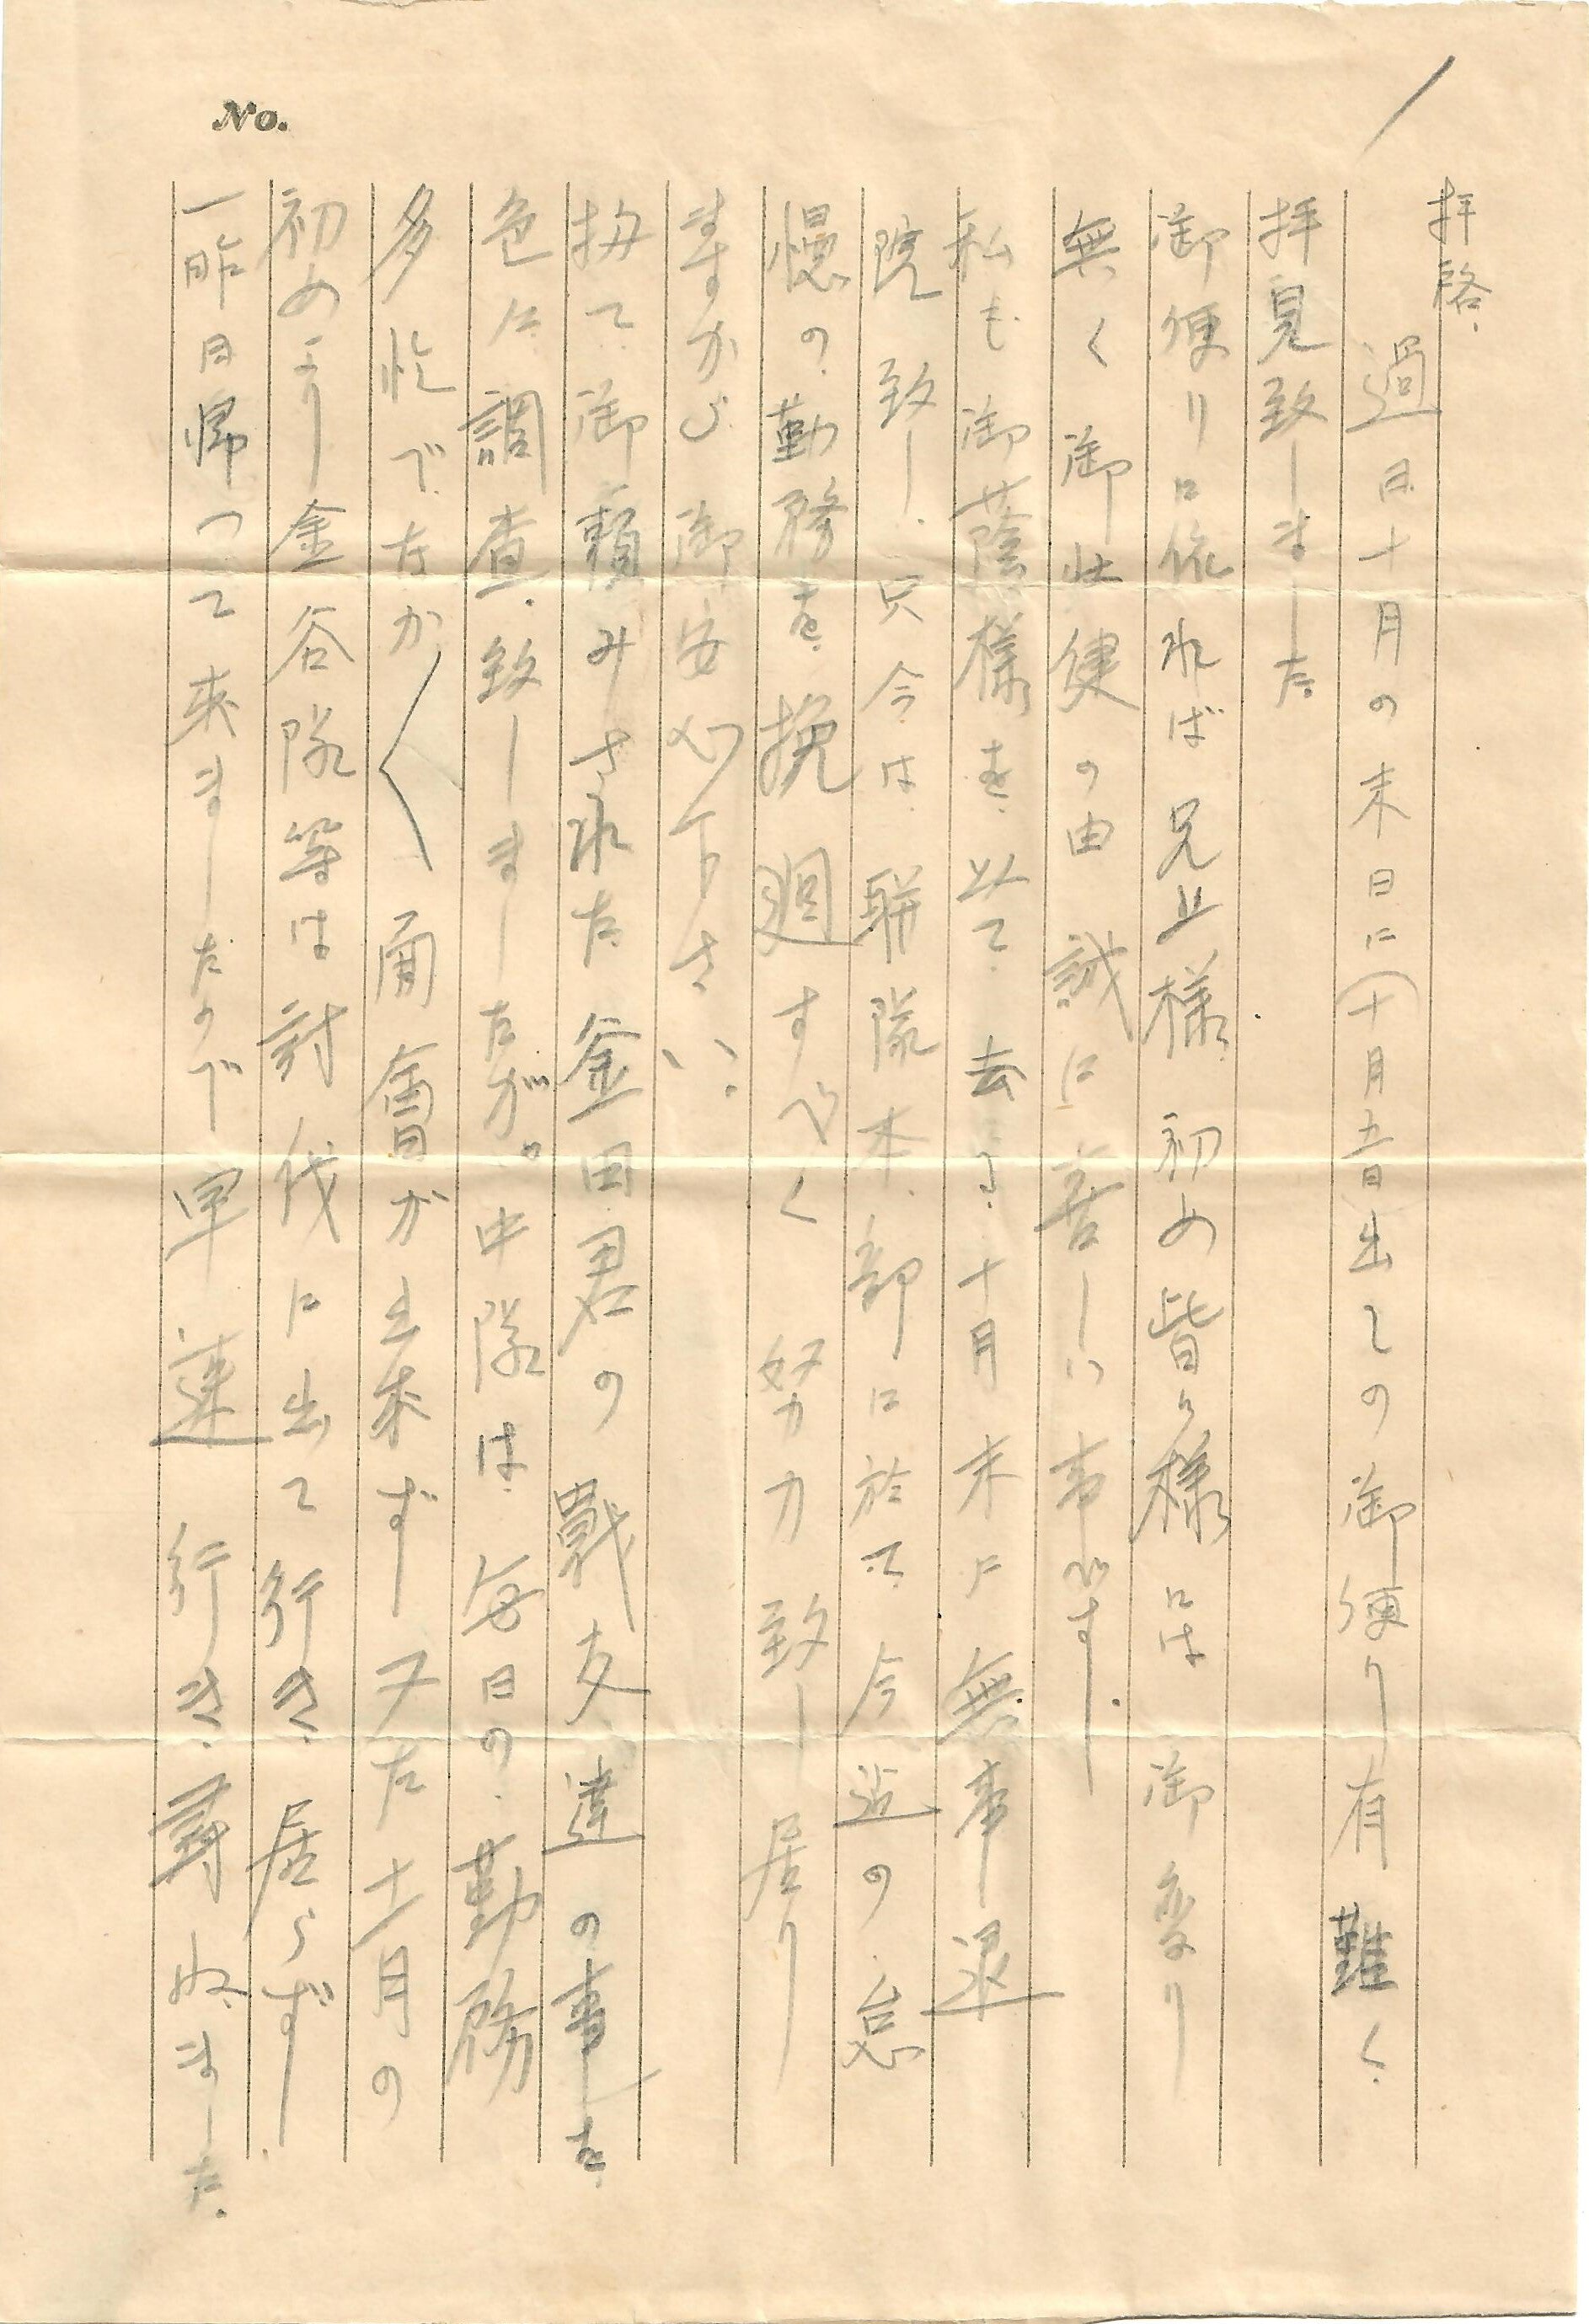 No.
拝啓.
過日十月の末日に(十月五日出しの御便り有難く
拝見致しました
御便りに依れば兄上様初め皆々様には御変り
無く御壮健の由誠に喜しい事です.
私も御蔭様を以て去る十月末に無事退
院致し.只今は聯隊本部に於て今迄の怠
慢の勤務を挽廻すべく努力致し居り
ますから御安心下さい.
扨て御頼みされた釜田君の戦友達の事を
色々調査致しましたが。中隊は毎日の勤務
多忙でなか〱面会が出来ず又た十一月の
初めより金谷隊等は討伐に出て行き居らず
一昨日帰つて来ましたので早速行き尋ねました.